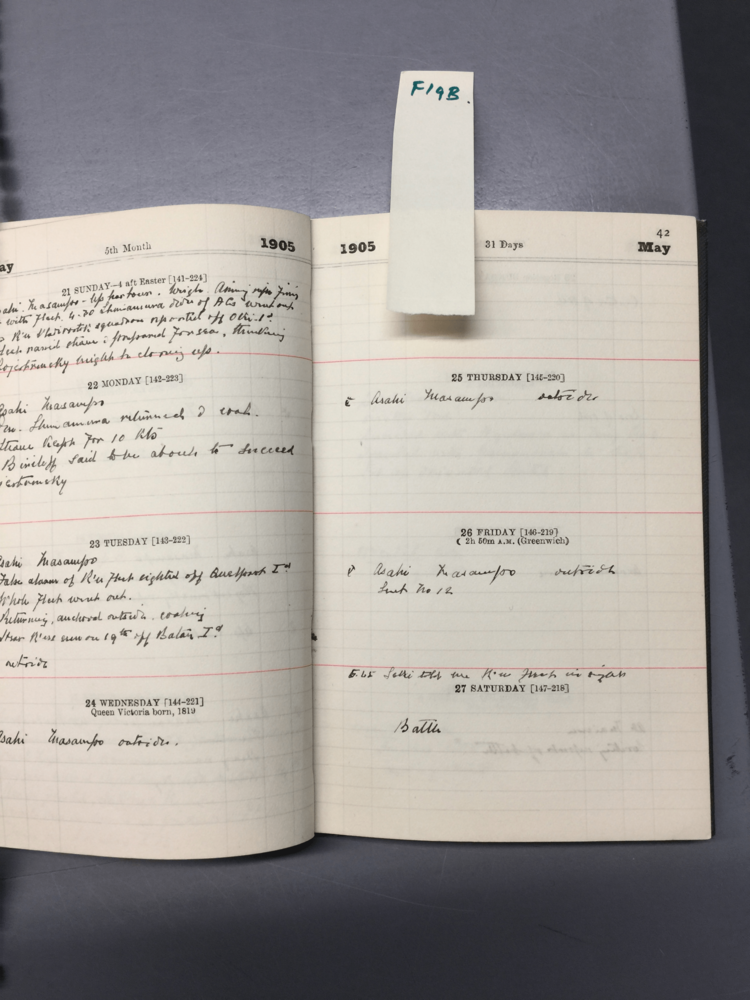 F19B.
ay 5th Month 1905
21 SUNDAY—4 aft Easter [141-224]
Masampo - up harbour.
with fleet. 4.30 Shimamura
R'n Vladivostk squadron reported off Oki Is.
raised steam & prepared for sea, thinking
might be closing up.
22 MONDAY [142-223]
Asahi Masampo
Shimamura returned & coal.
Steam kept for 10 kts
Birileff said to be about to succeed
23 TUESDAY [143-222]
Asahi Masampo
False alarm of R'n fleet sighted off Quelpart Id
Whole fleet went out.
Returning, anchored outside. coaling
seen on 19th off Batan Id
outside
24 WEDNESDAY [144-221]
Queen Victoria born, 1819
Asahi Masampo outside.
42
1905 31 Days May
25 THURSDAY [145-220]
Asahi Masampo outside
26 FRIDAY [146-219]
☾ 2h 50m A.M. (Greenwich)
Asahi Masampo outside
Sent No 12
told me R'n fleet in sight
27 SATURDAY [147-218]
Battle